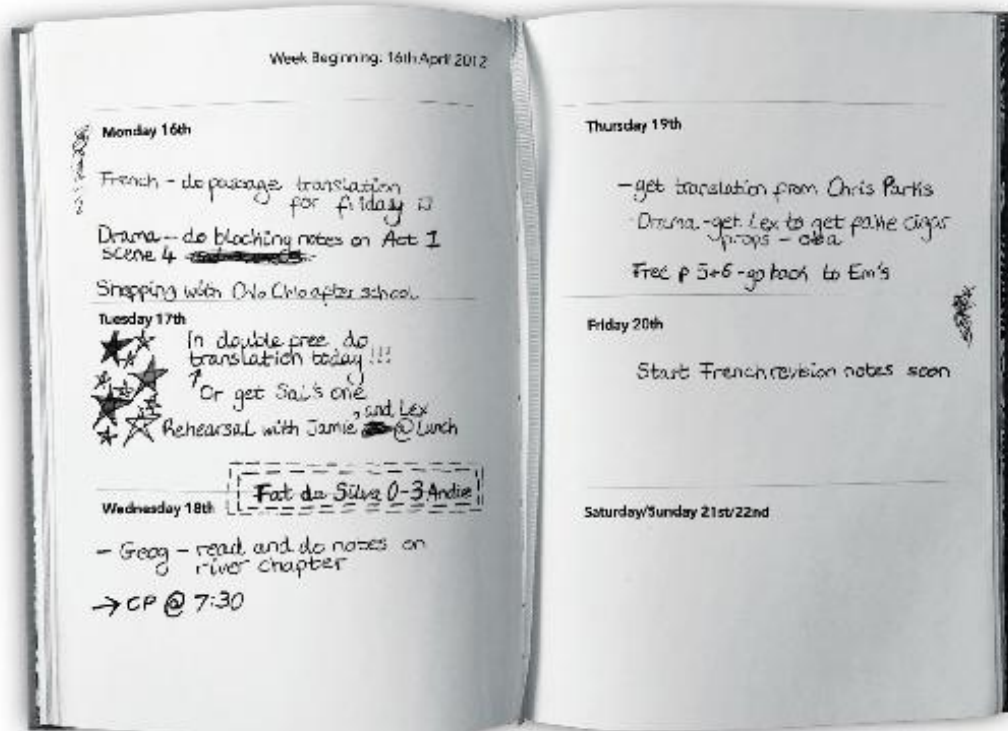 Week Beginning: 16th April 2012
Monday 16th
French - do passage translation
for friday
Drama - do blocking notes on Act 1
scene 4
Shopping with Chlo after school
Tuesday 17th
In double free do
translation today!!!
Or get Sal's one
Rehearsal with Jamie, and Lex
@ Lunch
Fat da Silva 0-3 Andie
Wednesday 18th
- Geog - read and do notes on
river chapter
→ CP @ 7:30
Thursday 19th
- get translation from Chris Parkis
Drama - get Lex to get fake cigar
props -
Free p 5+6 - go back to Em's
Friday 20th
Start French revision notes soon
Saturday/Sunday 21st/22nd